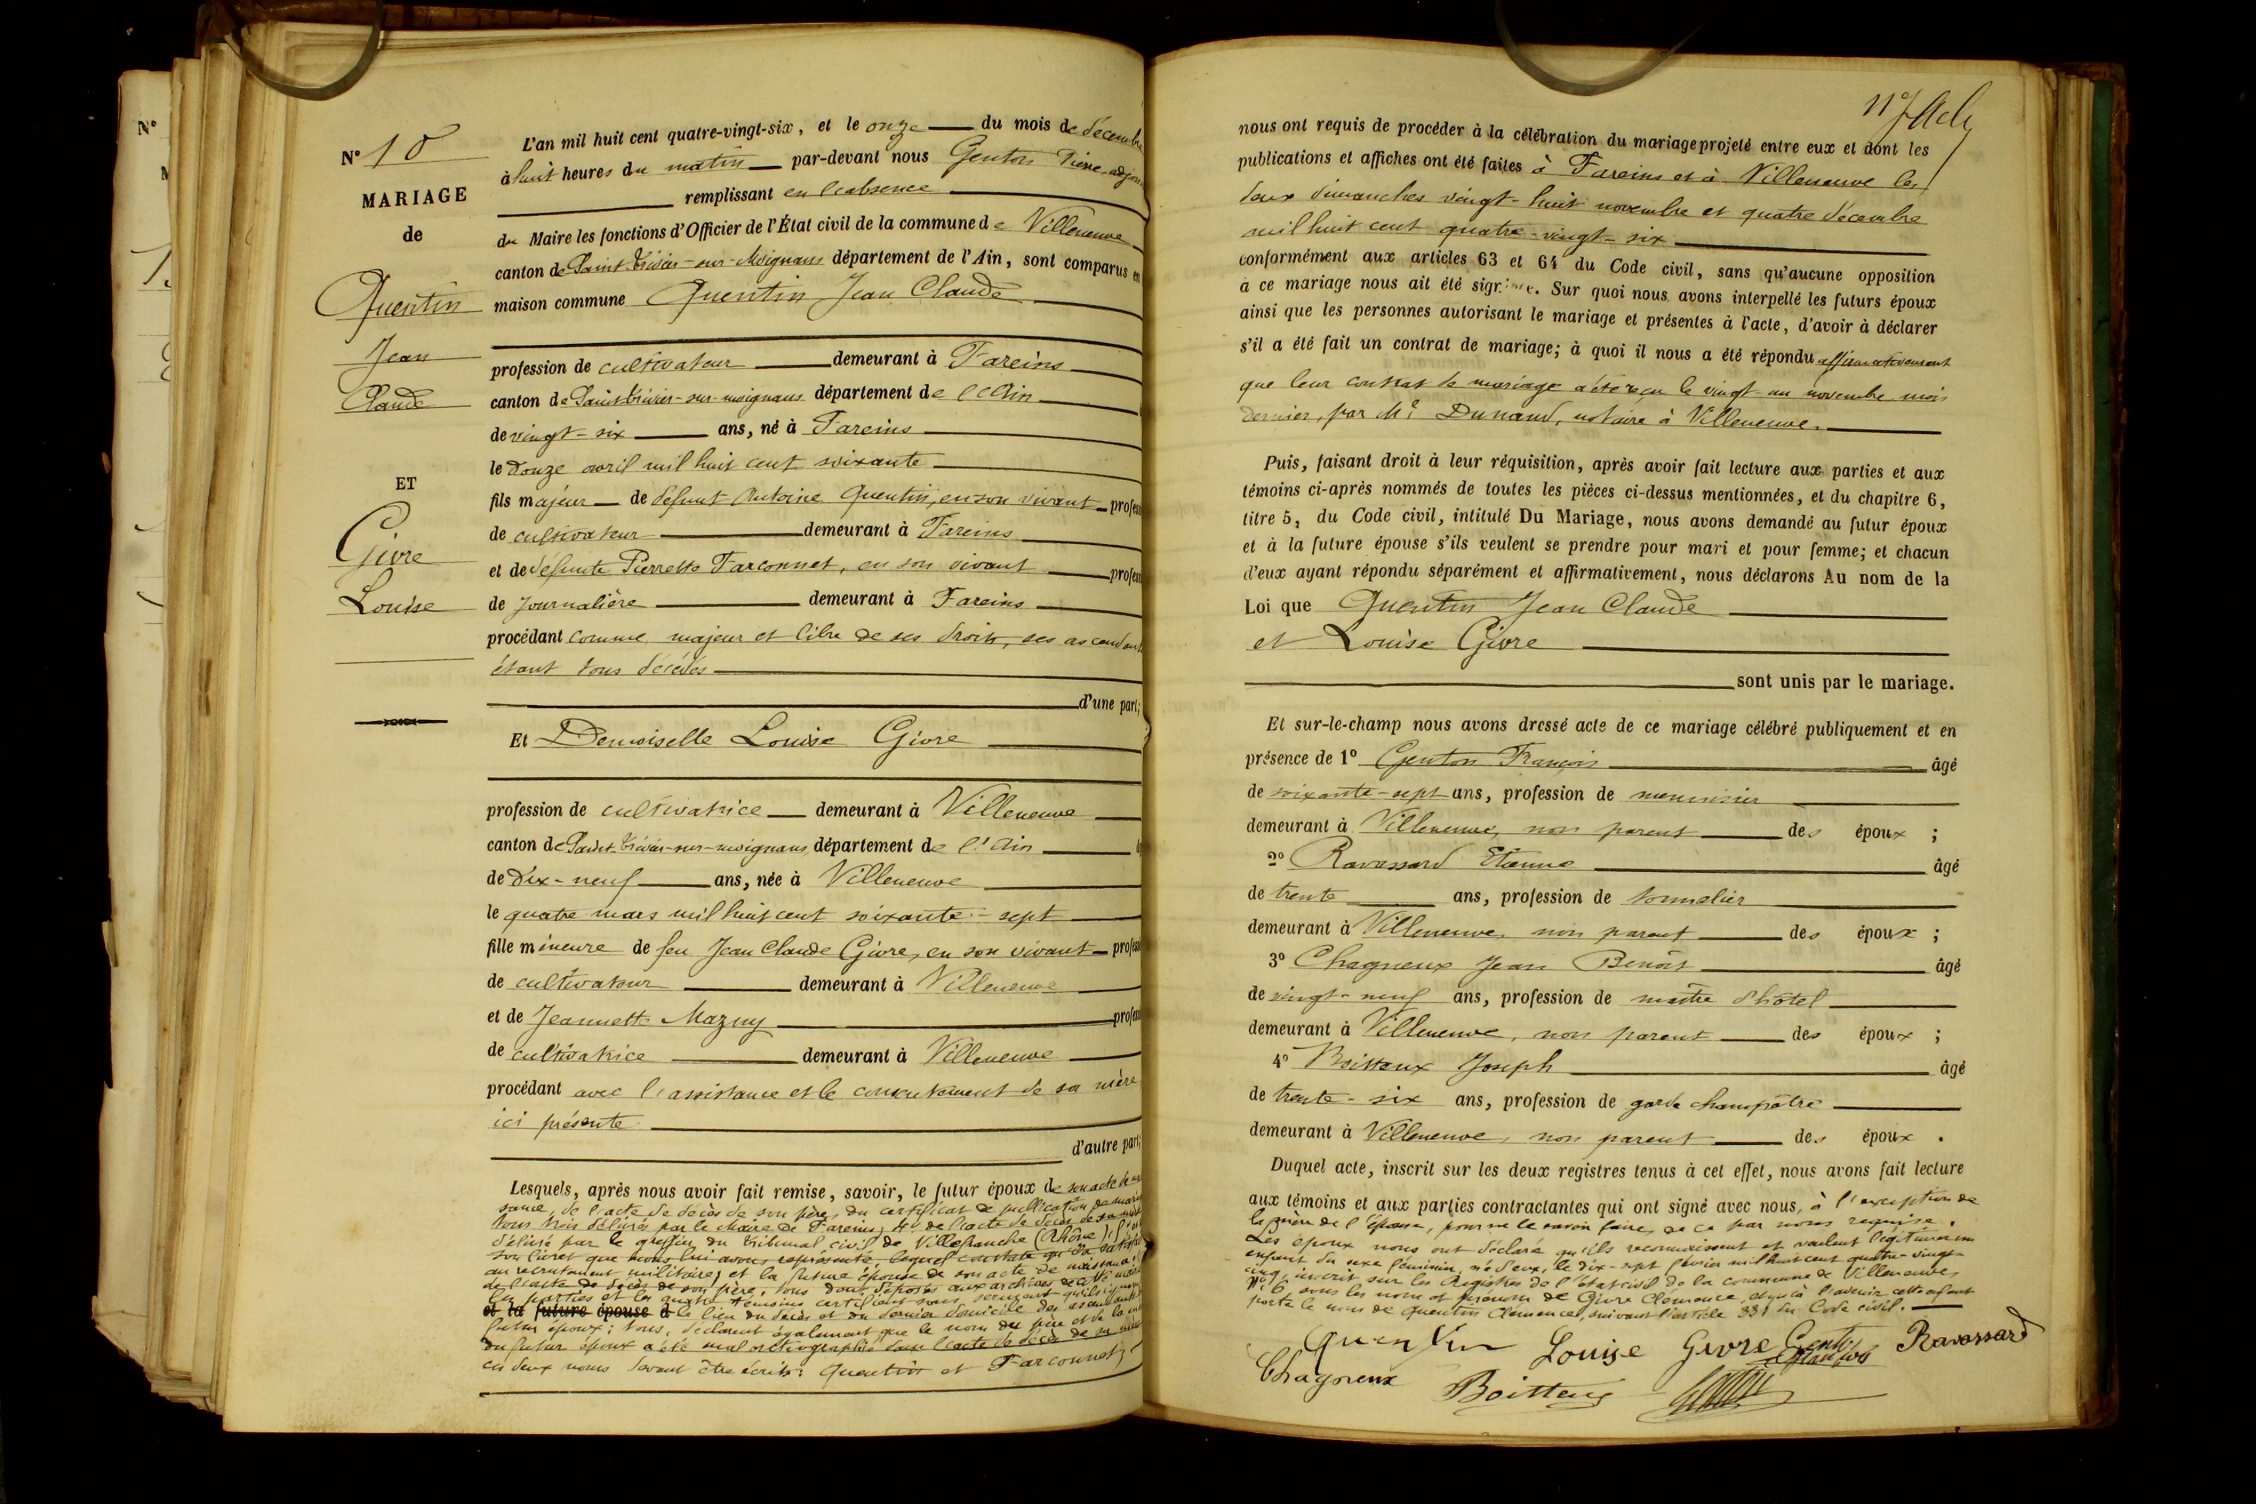 N°
N° 10
MARIAGE
de
Quentin
Jean
Claude
ET
Givre
Louise
L'an mil huit cent quatre-vingt-six, et le onze du mois de décembre
à huit heures du matin par-devant nous Genton Pierre adjoint
remplissant en l'absence
du Maire les fonctions d'Officier de l'État civil de la commune de Villeneuve
canton de Saint-Trivier-sur-Moignans département de l'Ain, sont comparus en
maison commune Quentin Jean Claude
profession de cultivateur demeurant à Fareins
canton de Saint-Trivier-sur-moignans département de l'Ain
de vingt-six ans, né à Fareins
le douze avril mil huit cent soixante
fils majeur de défunt Antoine Quentin, en son vivant profess
de cultivateur demeurant à Fareins
et de défunte Pierrette Farconnet, en son vivant profess
de journalière demeurant à Fareins
procédant comme majeur et libre de ses droits, ses ascendants
étant tous décédés
d'une part;
Et Demoiselle Louise Givre
profession de cultivatrice demeurant à Villeneuve
canton de Saint-Trivier-sur-moignans département de l'Ain
de dix-neuf ans, née à Villeneuve
le quatre mars mil huit cent soixante-sept
fille mineure de feu Jean Claude Givre, en son vivant profess
de cultivateur demeurant à Villeneuve
et de Jeannette Mazuy profess
de cultivatrice demeurant à Villeneuve
procédant avec l'assistance et le consentement de sa mère
ici présente
d'autre part;
Lesquels, après nous avoir fait remise, savoir, le futur époux de son acte de nais
sance, de l'acte de décès de son père, du certificat de publication de mariage
tous trois délivrés par le Maire de Fareins; 4° de l'acte de décès de sa mère
délivré par le greffier du tribunal civil de Villefranche (Rhône);
son livret que nous lui avons représenté lequel constate qu'il a satisfait
au recrutement militaire; et la future épouse de son acte de naissance;
de l'acte de décès de son père, tous deux déposés aux archives de cette mairie
les parties et les quatre témoins certifient sous serment qu'ils ignorent
et la future épouse d le lieu du décès et du dernier domicile des ascendants
futur époux; tous, déclarent également que le nom du père et de la mère
du futur époux a été mal orthographié dans l'acte de décès de sa mère
ces deux noms devant être écrits: Quentin et Farconnet;
nous ont requis de procéder à la célébration du mariage projeté entre eux et dont les
publications et affiches ont été faites à Fareins et à Villeneuve les
deux dimanches vingt-huit novembre et quatre décembre
mil huit cent quatre-vingt-six
conformément aux articles 63 et 64 du Code civil, sans qu'aucune opposition
à ce mariage nous ait été signifiée. Sur quoi nous avons interpellé les futurs époux
ainsi que les personnes autorisant le mariage et présentes à l'acte, d'avoir à déclarer
s'il a été fait un contrat de mariage; à quoi il nous a été répondu affirmativement
que leur contrat de mariage a été reçu le vingt-un novembre mois
dernier, par Me Dunand, notaire à Villeneuve.
Puis, faisant droit à leur réquisition, après avoir fait lecture aux parties et aux
témoins ci-après nommés de toutes les pièces ci-dessus mentionnées, et du chapitre 6,
titre 5, du Code civil, intitulé Du Mariage, nous avons demandé au futur époux
et à la future épouse s'ils veulent se prendre pour mari et pour femme; et chacun
d'eux ayant répondu séparément et affirmativement, nous déclarons Au nom de la
Loi que Quentin Jean Claude
et Louise Givre
sont unis par le mariage.
Et sur-le-champ nous avons dressé acte de ce mariage célébré publiquement et en
présence de 1° Genton François âgé
de soixante-sept ans, profession de menuisier
demeurant à Villeneuve, non parent des époux ;
2° Ravassard Etienne âgé
de trente ans, profession de tonnelier
demeurant à Villeneuve, non parent des époux ;
3° Chagneux Jean Benoît âgé
de vingt-neuf ans, profession de maître d'hôtel
demeurant à Villeneuve, non parent des époux ;
4° Boitteux Joseph âgé
de trente-six ans, profession de garde champêtre
demeurant à Villeneuve, non parent des époux .
Duquel acte, inscrit sur les deux registres tenus à cet effet, nous avons fait lecture
aux témoins et aux parties contractantes qui ont signé avec nous, à l'exception de
la mère de l'épouse, pour ne le savoir faire, de ce par nous requise.
Les époux nous ont déclaré qu'ils reconnaissent et veulent légitimer un
enfant du sexe féminin, né d'eux, le dix-sept février mil huit cent quatre-vingt-
cinq, inscrit sur les Registres de l'état civil de la commune de Villeneuve,
N° 6, sous les nom et prénom de Givre Clémence, à l'avenir cette enfant
porte le nom de Quentin Clémence, suivant l'article 331 du Code civil.
Quentin Louise Givre Genton François Ravassard
Chagneux Boitteux